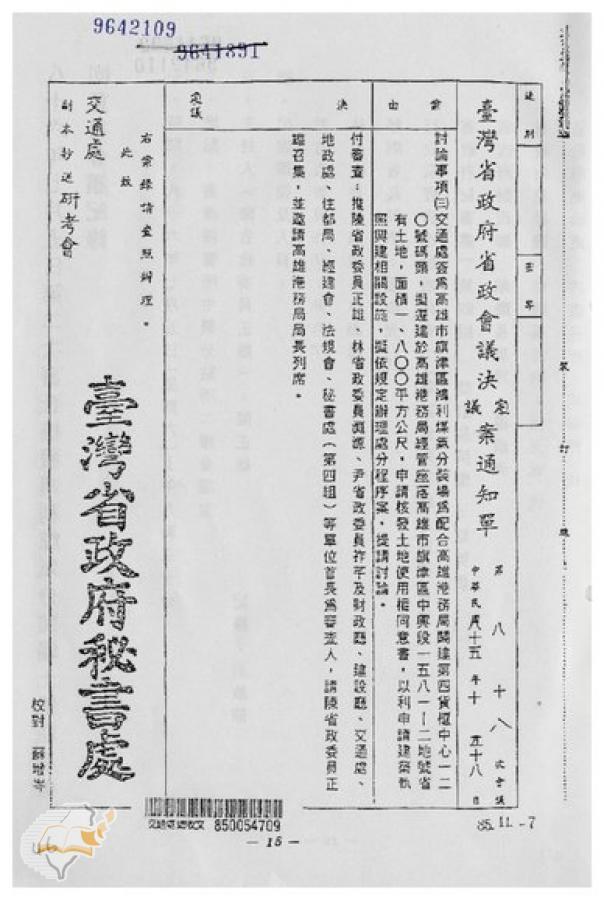 9642109
9641891
速別
密等
臺灣省政府省政會議決定議案通知單
第八十八次會議
中華民國八十五年十
案由
討論事項㈢交通處簽為高雄市旗津區鴻利煤氣分裝場為配合高雄港務局闢建第四貨櫃中心一二
〇號碼頭,擬遷建於高雄港務局經管座落高雄市旗津區中興段一五八一—二地號省
有土地,面積一、八〇〇平方公尺,申請核發土地使用權同意書,以利申請建築執
照興建相關設施,擬依規定辦理處分程序案,提請討論。
決
付審查:推陳省政委員正雄、林省政委員淵源、尹省政委員祚芊及財政廳、建設廳、交通處、
地政處、住都局、經建會、法規會、秘書處(第四組)等單位首長為審查人,請陳省政委員正
雄召集,並邀請高雄港務局局長列席。
定議
右案錄請查照辦理。
此致
交通處
副本抄送研考會
臺灣省政府秘書處
校對
裝
訂
線
交通處總收文 850054709
85. 11. -7
— 15 —